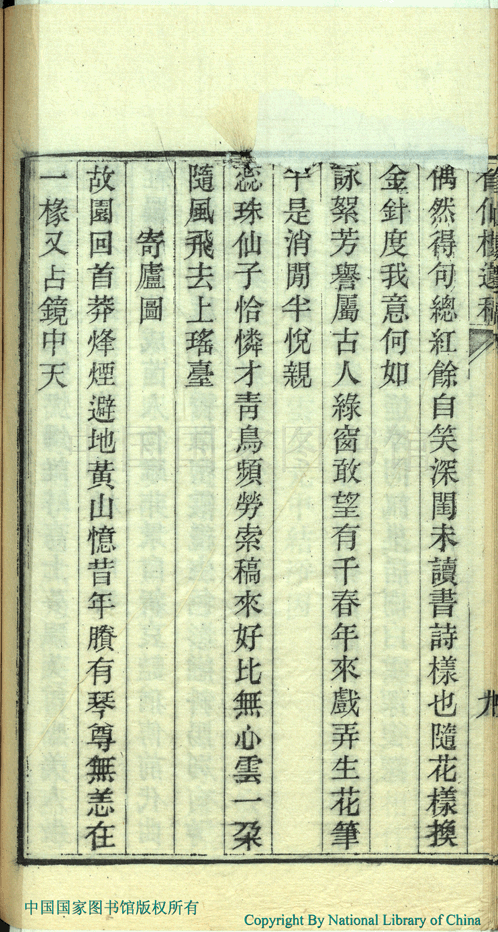 仙樓遺稿
九
偶然得句總紅餘自笑深閨未讀書詩樣也隨花樣換
金針度我意何如
詠絮芳譽屬古人綠窗敢望有千春年來戲弄生花筆
半是消閒半悅親
蕊珠仙子恰憐才青鳥頻勞索稿來好比無心雲一朶
隨風飛去上瑤臺
寄廬圖
故園回首莽烽煙避地黃山憶昔年賸有琴尊無恙在
一椽又占鏡中天
中国国家图书馆版权所有
Copyright By National Library of China